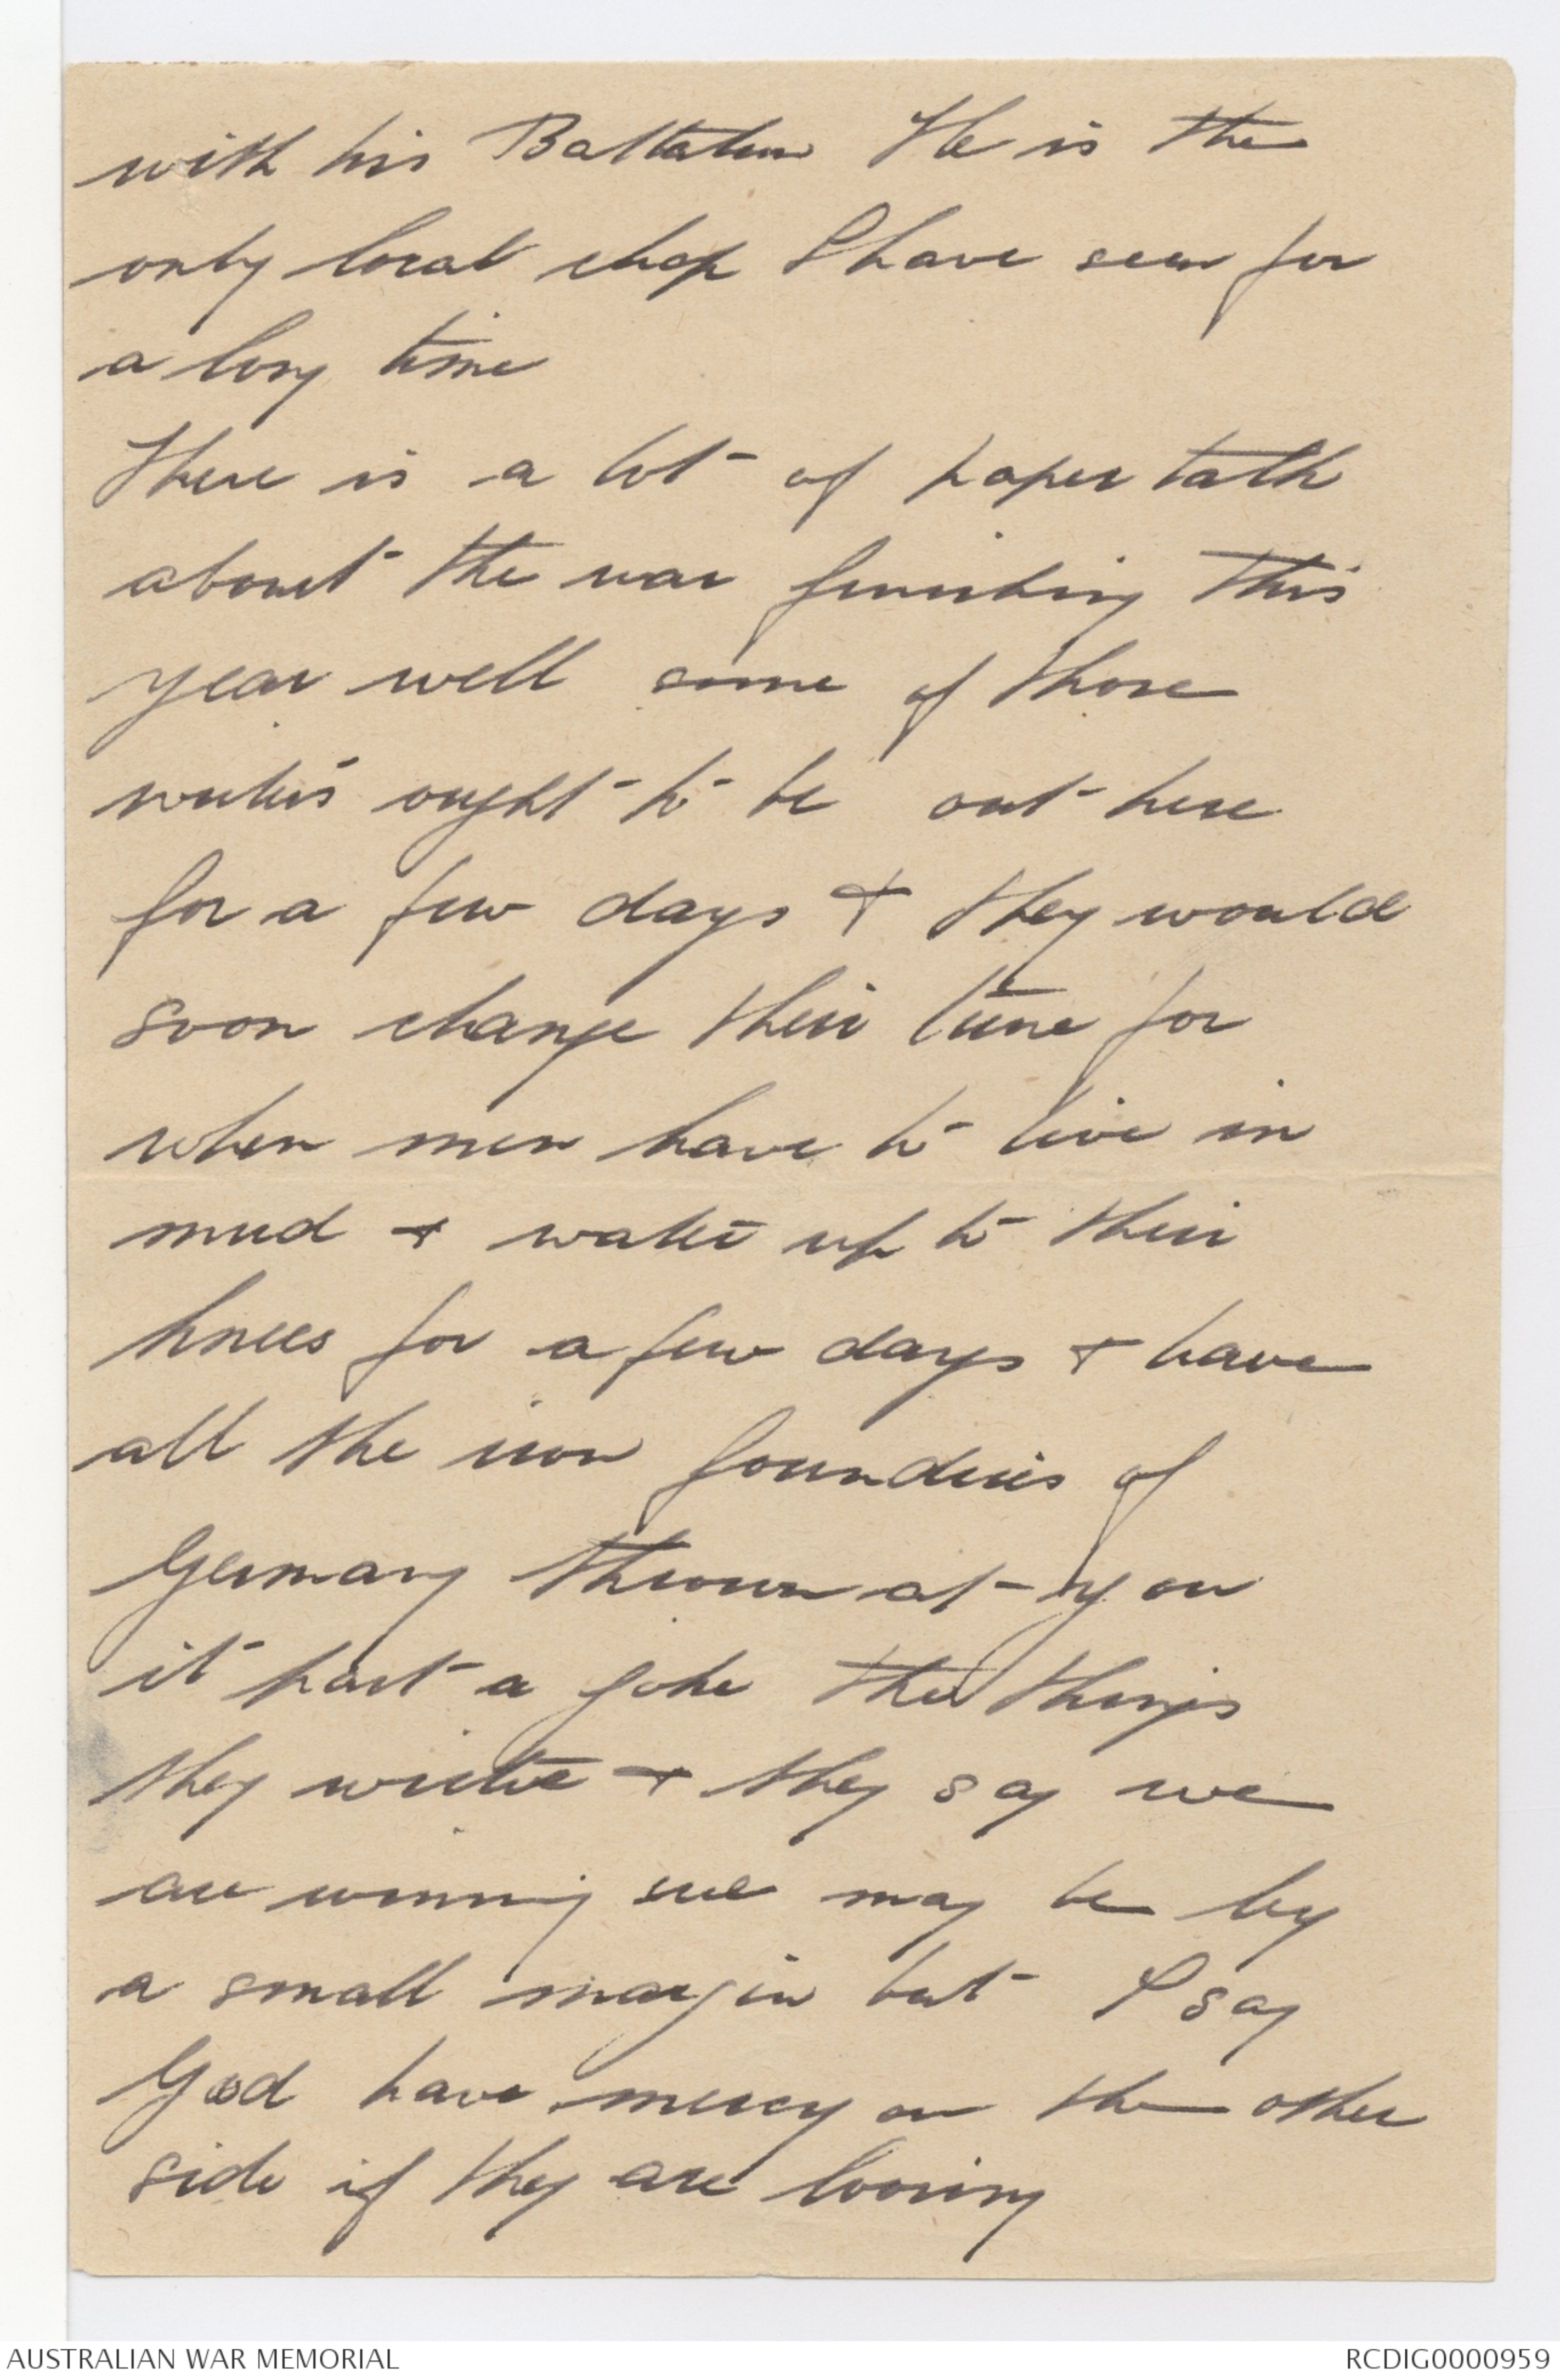 with his Battalion He is the
only local chap I have seen for
a long time
There is a lot of paper talk
about the war finishing this
year well some of those
writers ought to be out here
for a few days & they would
soon change their tune for
when men have to live in
mud & water up to their
knees for a few days & have
all the iron foundries of
Germany thrown at you
it past a joke the things
they write & they say we
are winning we may be by
a small margin but I say
God have mercy on the other
side if they are loosing
AUSTRALIAN WAR MEMORIAL
RCDIG0000959